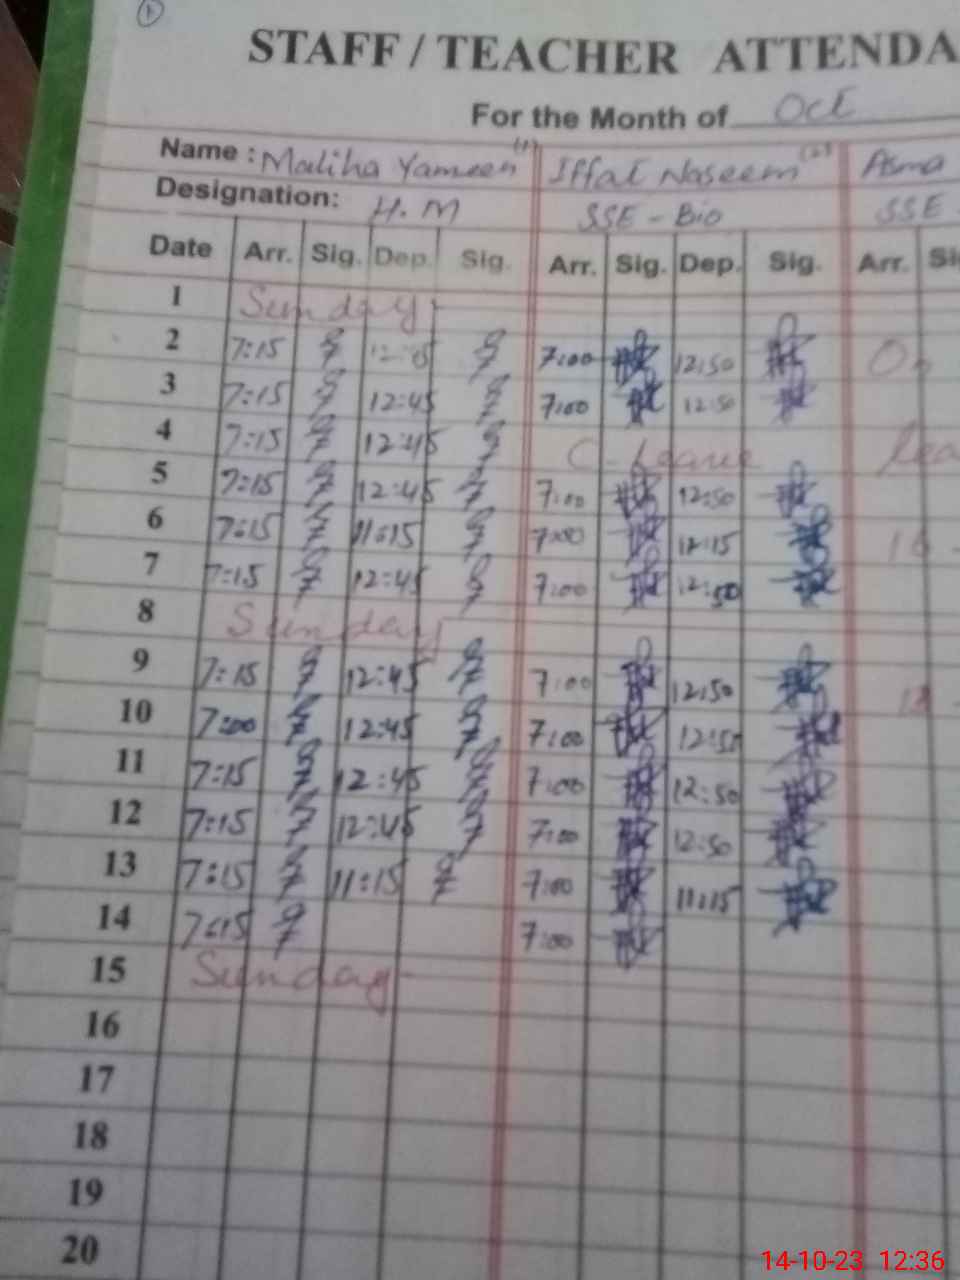 STAFF / TEACHER ATTENDA
For the Month of Oct
Name : Maliha Yameen (1) Iffat Naseem (2) Asma
Designation: H.M SSE - Bio SSE -
Date Arr. Sig. Dep. Sig. Arr. Sig. Dep. Sig. Arr. Si
1 Sunday
2 7:15 12:45 7:00 12:50 On
3 7:15 12:45 7:00 12:50
4 7:15 12:45 C. Leave Lea
5 7:15 12:45 7:00 12:50
6 7:15 11:15 7:00 12:15
7 7:15 12:45 7:00 12:50
8 Sunday
9 7:15 12:45 7:00 12:50
10 7:00 12:45 7:00 12:50
11 7:15 12:45 7:00 12:50
12 7:15 12:45 7:00 12:50
13 7:15 11:15 7:00 11:15
14 7:15 7:00
15 Sunday
16
17
18
19
20
14-10-23 12:36